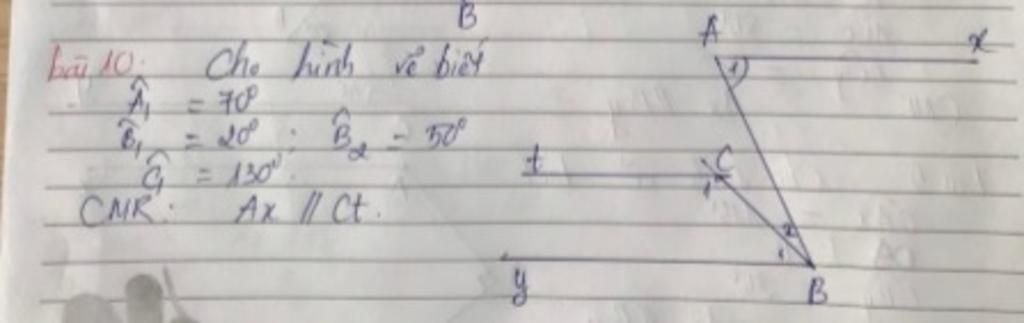 B
bài 10. Cho hình vẽ biết
Â₁ = 70°
B̂₁ = 20° ; B̂₂ = 50°
Ĉ₁ = 130°.
CMR: Ax // Ct.
A x
1
t C
1
2
1
y B